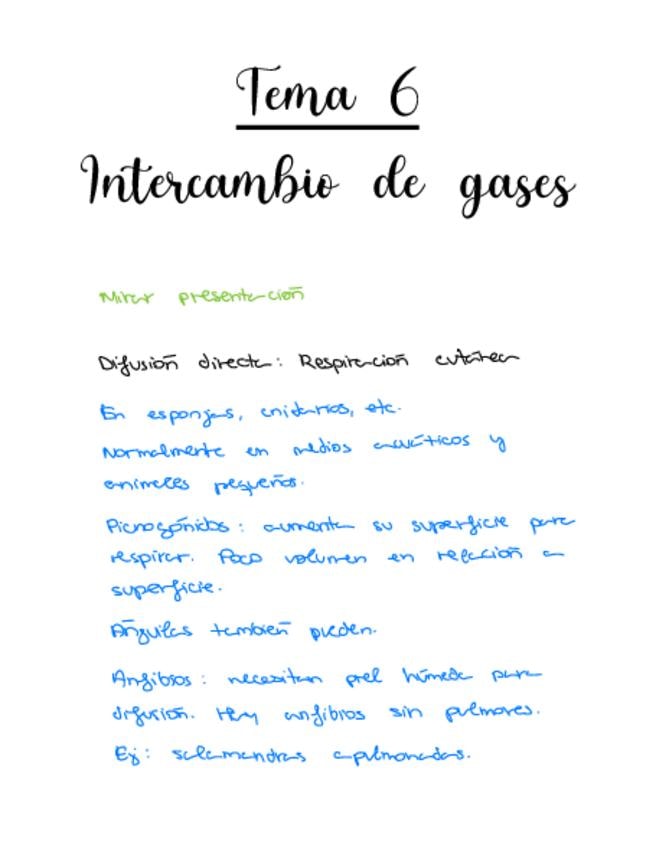 Tema 6
Intercambio de gases
Mirar presentación
Difusión directa: Respiración cutánea
En esponjas, cnidarios, etc.
Normalmente en medios acuáticos y
animales pequeños.
Picnogónidos: aumenta su superficie para
respirar. Poco volumen en relación a
superficie.
Anguilas también pueden.
Anfibios: necesitan piel húmeda para
difusión. Hay anfibios sin pulmones.
Ej: salamandras apulmonadas.